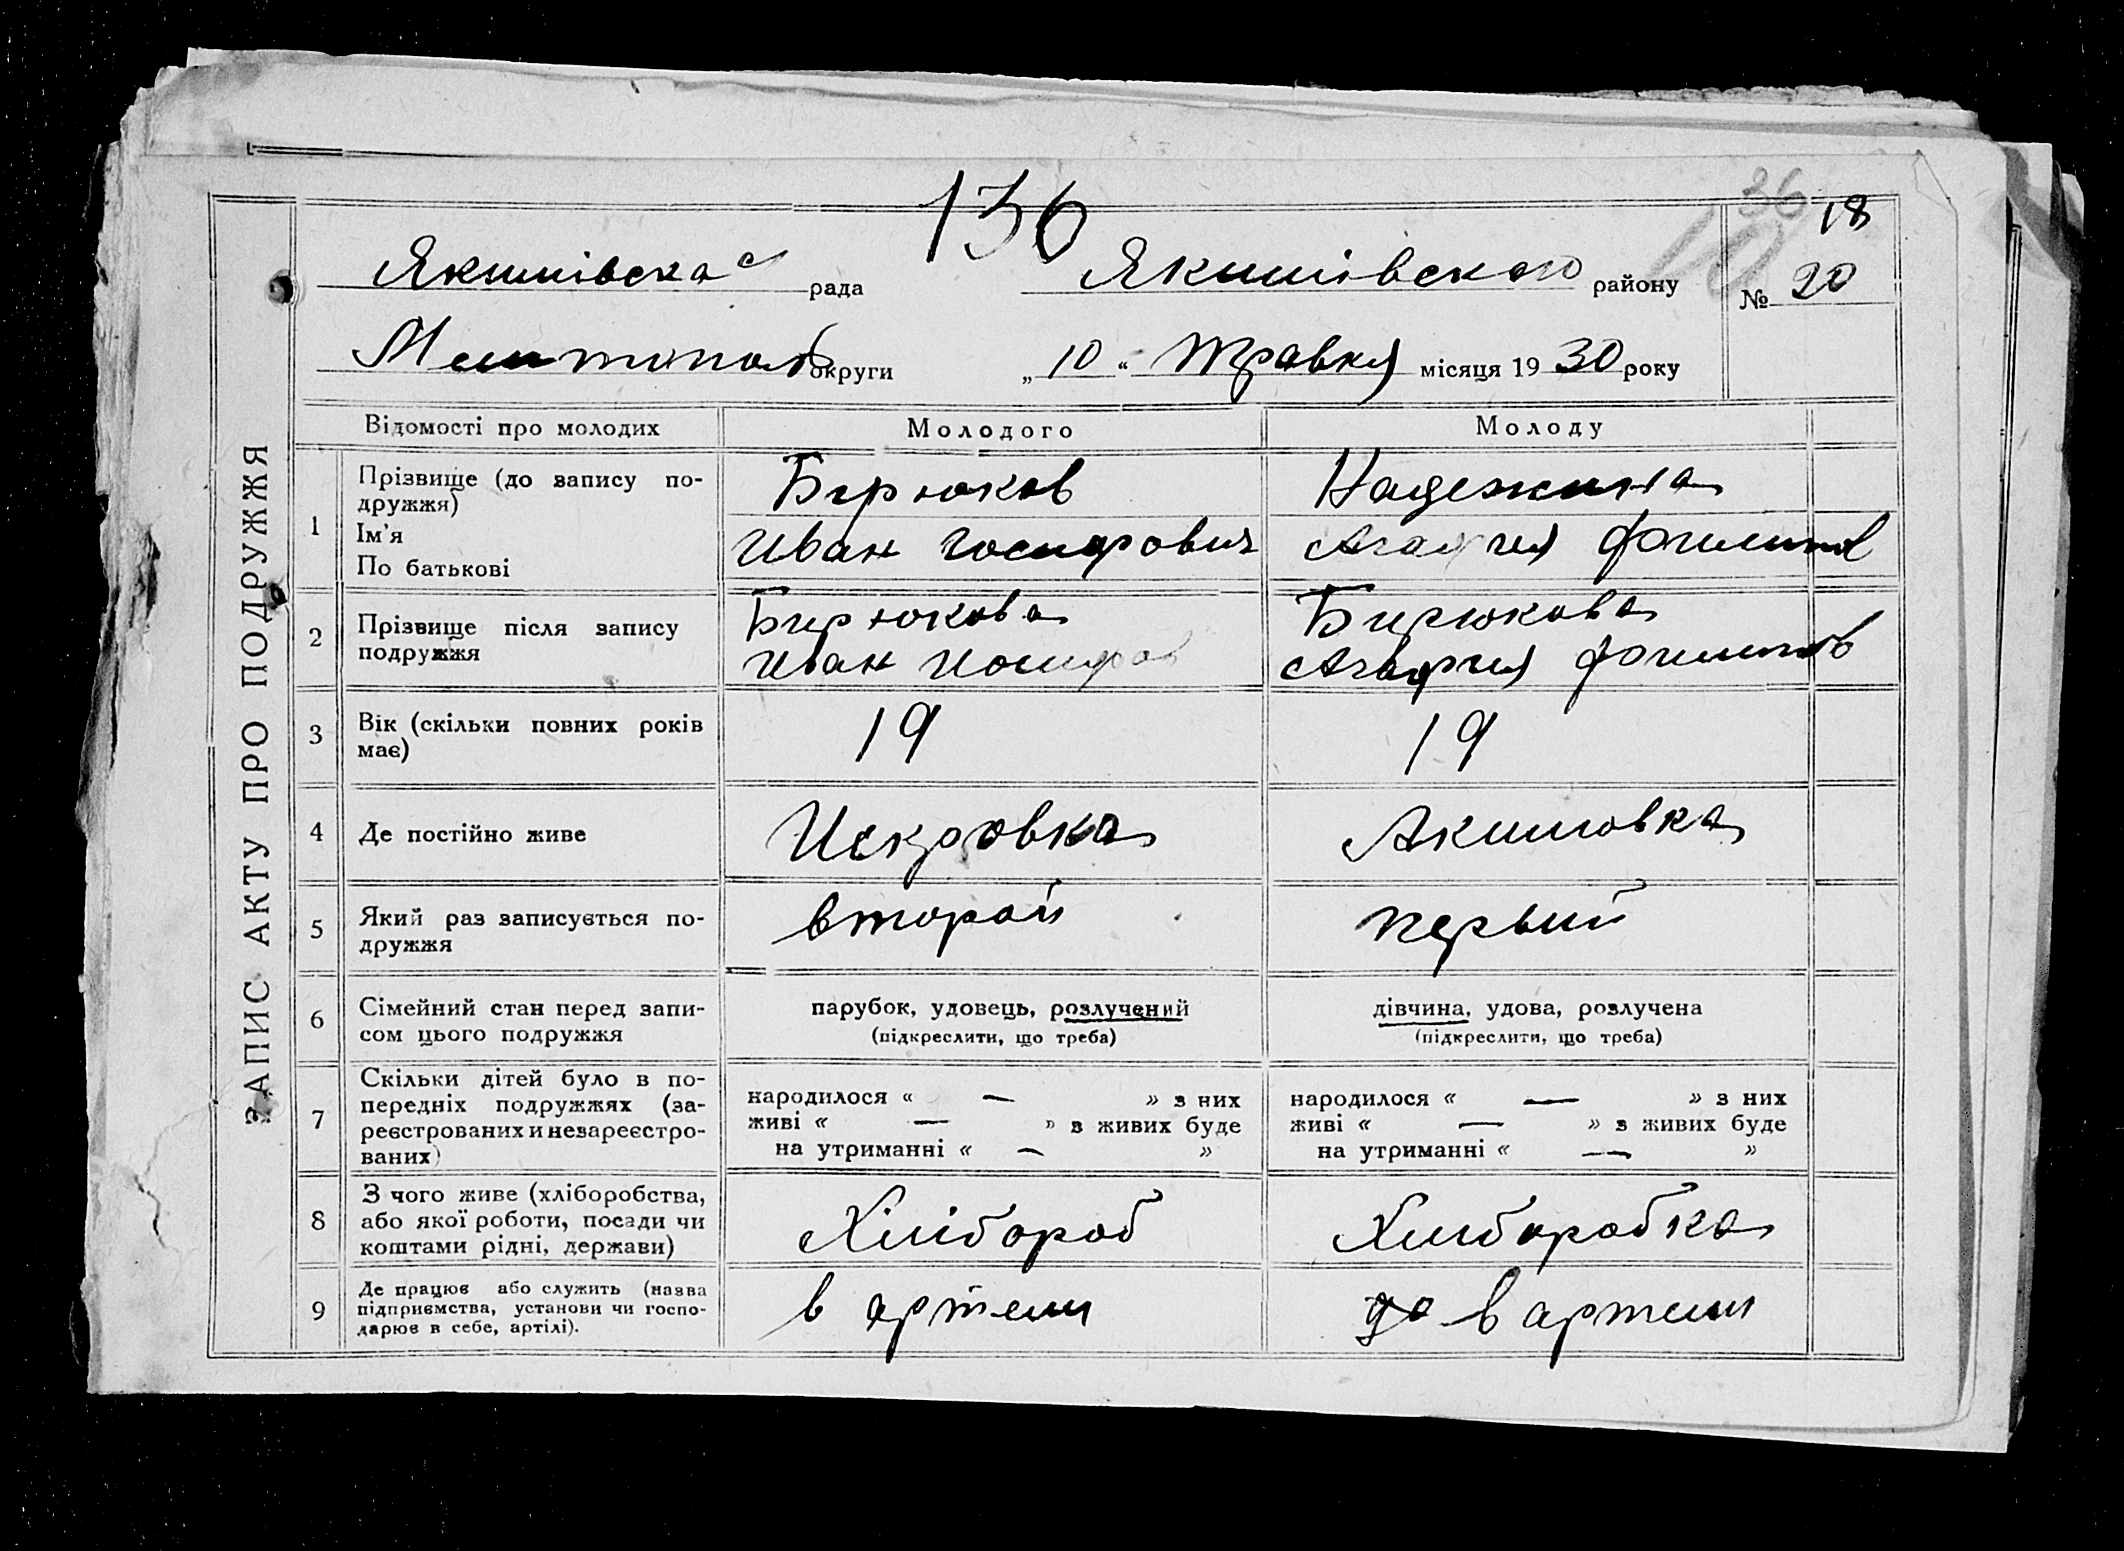 136
36
18
Якимівска с/ рада Якимівского району № 20
Мелитопол округи „ 10 “ травня місяця 19 30 року
ЗАПИС АКТУ ПРО ПОДРУЖЖЯ
Відомості про молодих Молодого Молоду
1 Прізвище (до запису по-
дружжя)
Ім'я
По батькові
Бирюков
Иван Иосифович
Надежкина
Агафия
2 Прізвище після запису
подружжя
Бирюкова
Иван Иосифов
Бирюкова
Агафия
3 Вік (скільки повних років
має)
19
19
4 Де постійно живе Искровка Акимовка
5 Який раз записується по-
дружжя
второй
первый
6 Сімейний стан перед запи-
сом цього подружжя
парубок, удовець, розлучений
(підкреслити, що треба)
дівчина, удова, розлучена
(підкреслити, що треба)
7 Скільки дітей було в по-
передніх подружжях (за-
реєстрованих и незареєстро-
ваних)
народилося « — » з них
живі « — » з живих буде
на утриманні « — »
народилося « — » з них
живі « — » з живих буде
на утриманні « — »
8 З чого живе (хліборобства,
або якої роботи, посади чи
коштами рідні, держави)
Хлібороб
Хлиборобка
9 Де працює або служить (назва
підприємства, установи чи госпо-
дарює в себе, артілі).
в артели
в артели